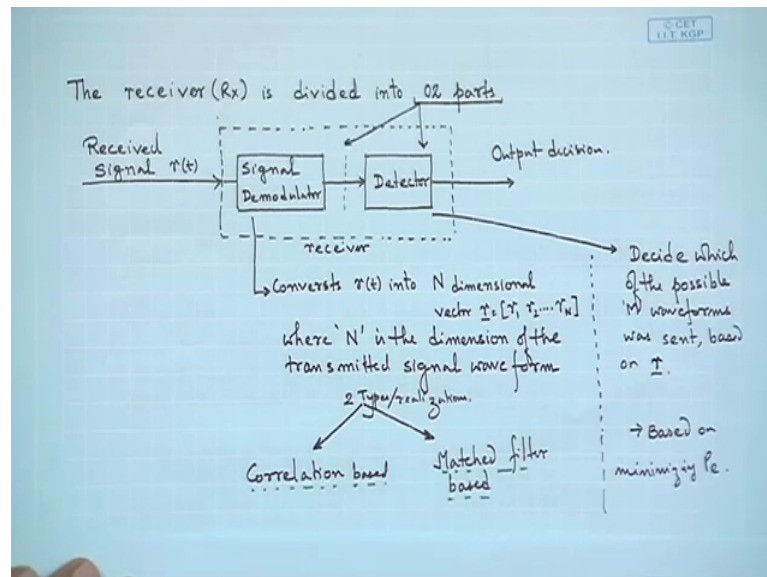 © CET
I.I.T. KGP
The receiver (Rx) is divided into 02 parts
Received
Signal r(t)
Signal
Demodulator
Detector
Output decision.
receiver
Conversts r(t) into N dimensional
vector r = [r1 r2....rN]
where 'N' is the dimension of the
transmitted signal wave form
2 Types/realizations.
Correlation based
Matched filter
based
Decide which
of the possible
'M' waveforms
was sent, based
on r.
→ Based on
minimizig Pe.